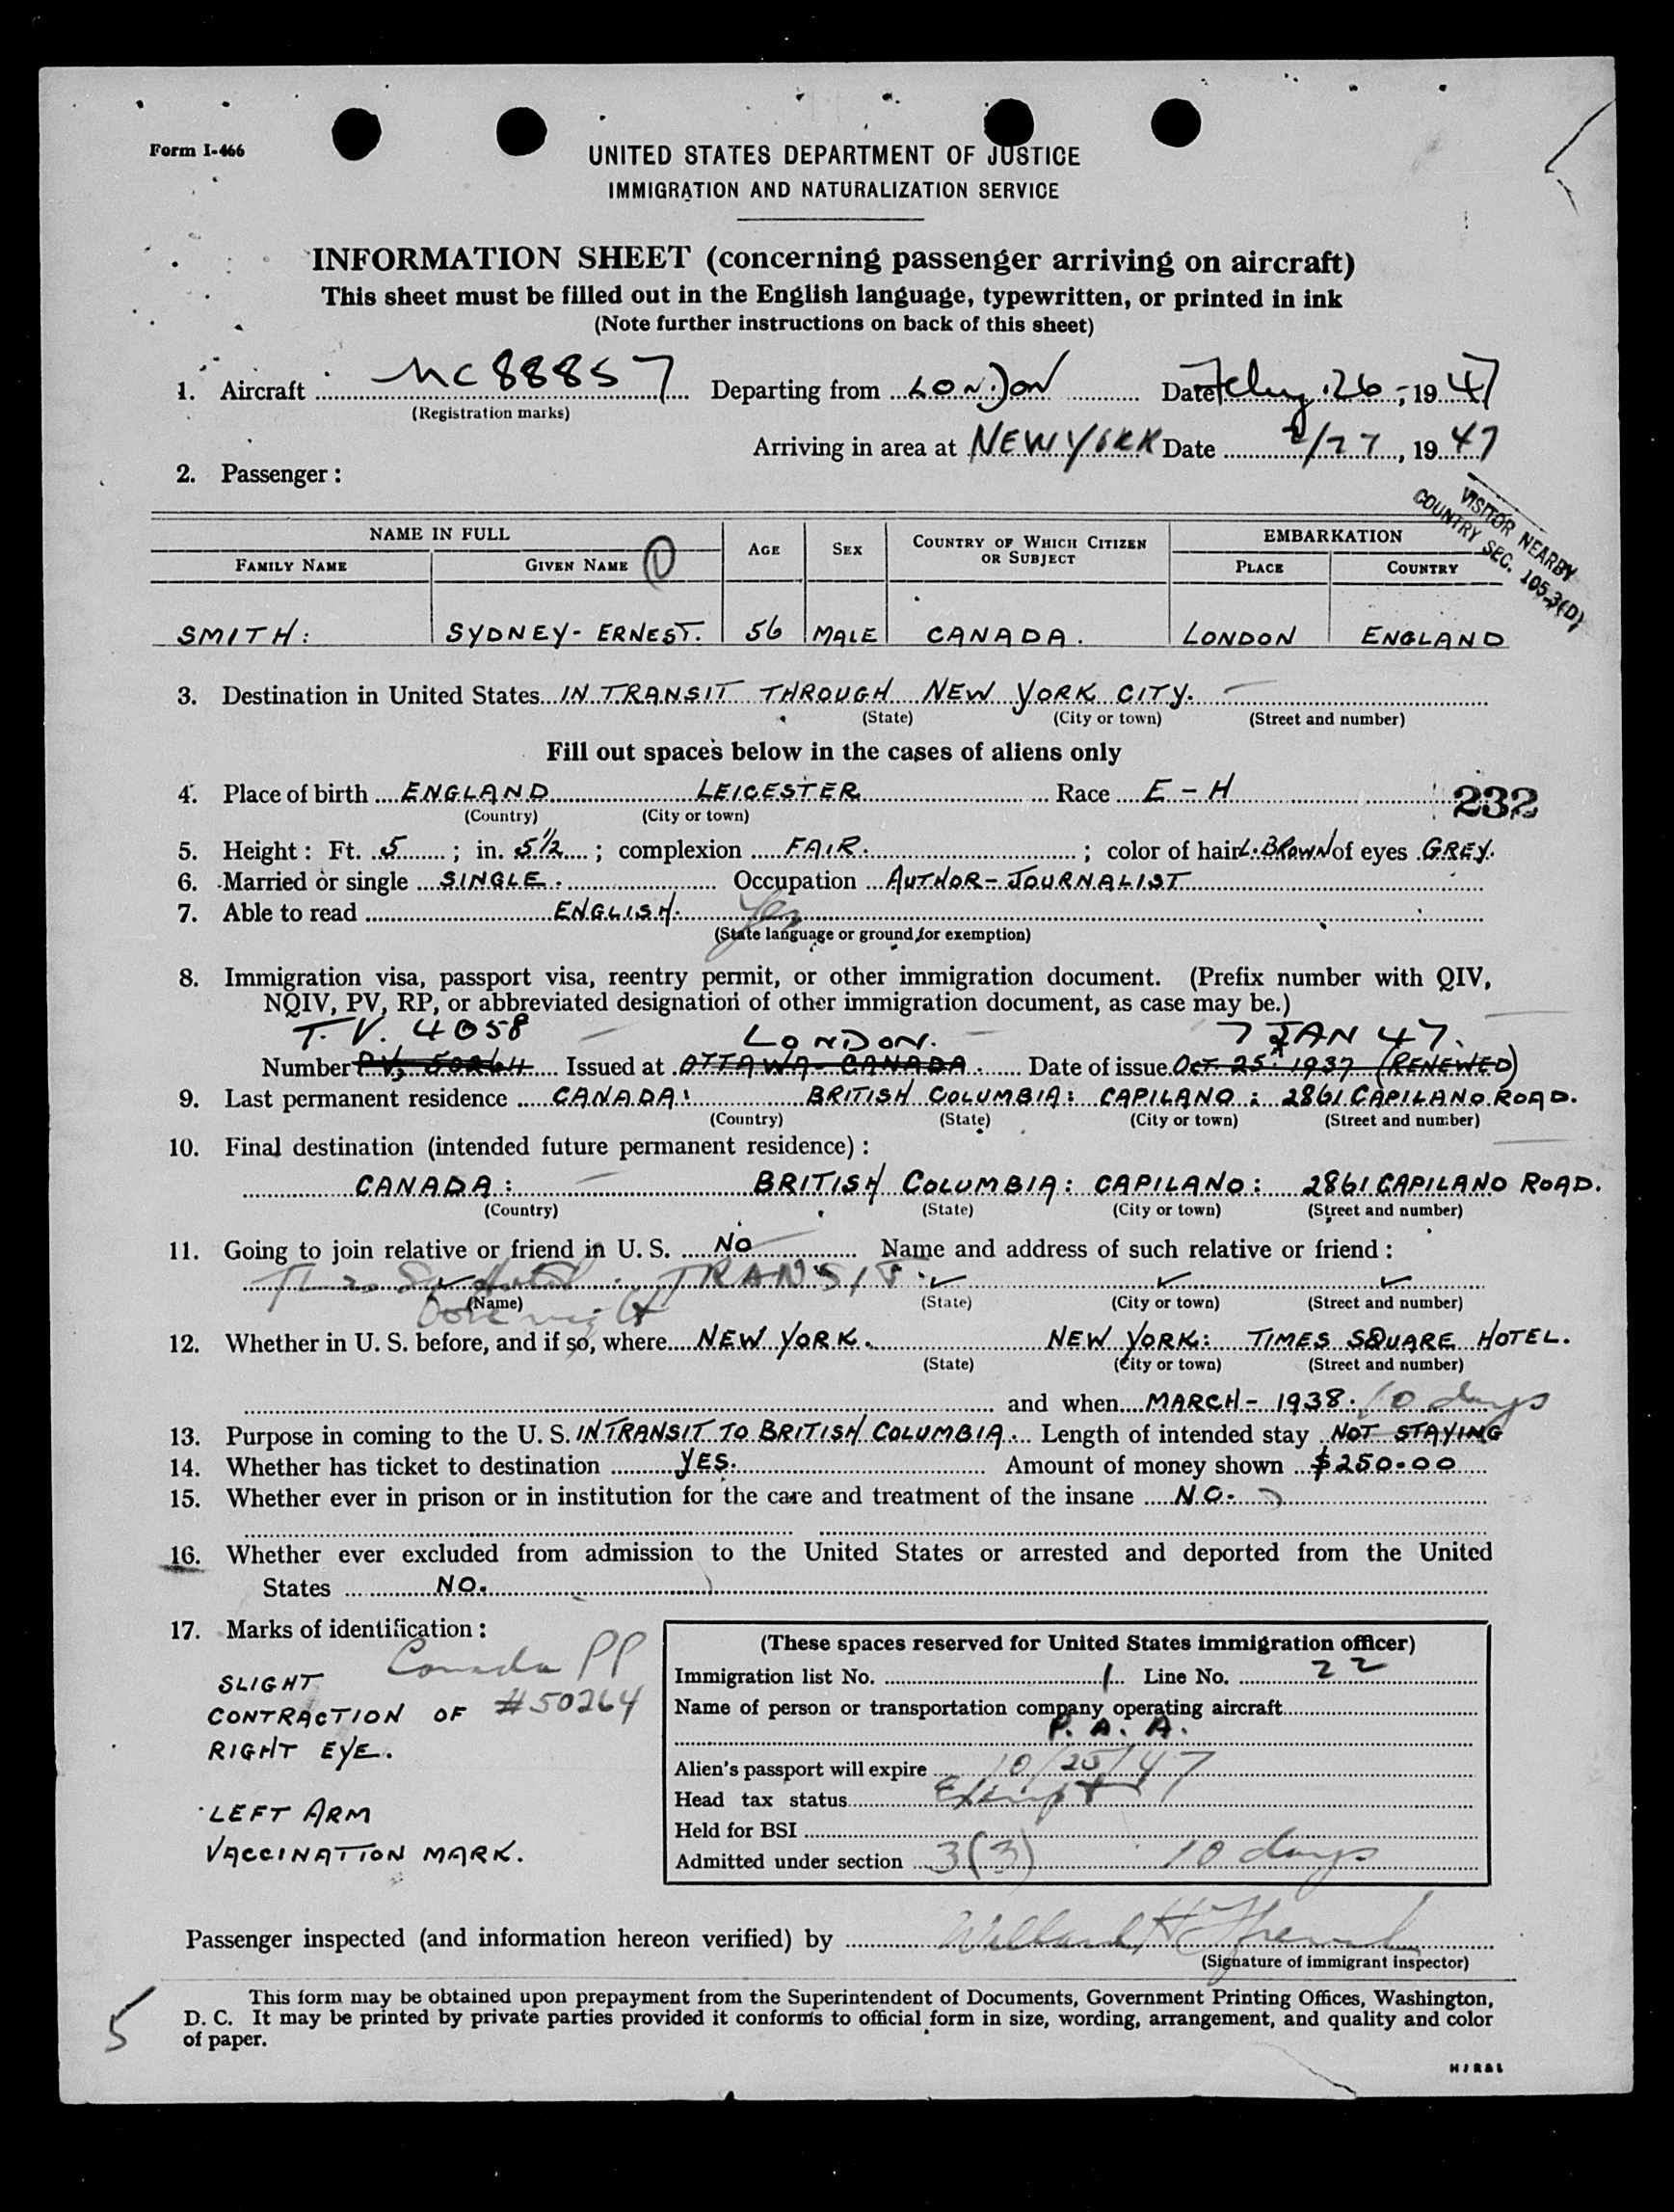 Form I-466
UNITED STATES DEPARTMENT OF JUSTICE
IMMIGRATION AND NATURALIZATION SERVICE
INFORMATION SHEET (concerning passenger arriving on aircraft)
This sheet must be filled out in the English language, typewritten, or printed in ink
(Note further instructions on back of this sheet)
1. Aircraft NC 88857 Departing from LONDON Date Feby 26, 1947
(Registration marks)
Arriving in area at NEW YORK Date 2/27, 1947
2. Passenger:
VISITOR NEARBY
COUNTRY SEC. 105.3(D)
NAME IN FULL AGE SEX COUNTRY OF WHICH CITIZEN OR SUBJECT EMBARKATION
FAMILY NAME GIVEN NAME PLACE COUNTRY
SMITH: SYDNEY-ERNEST. 56 MALE CANADA. LONDON ENGLAND
3. Destination in United States IN TRANSIT THROUGH NEW YORK CITY.
(State) (City or town) (Street and number)
Fill out spaces below in the cases of aliens only
4. Place of birth ENGLAND LEICESTER Race E-H 232
(Country) (City or town)
5. Height: Ft. 5; in. 5 1/2"; complexion FAIR.; color of hair L.BROWN of eyes GREY.
6. Married or single SINGLE. Occupation AUTHOR-JOURNALIST
7. Able to read ENGLISH. Yes
(State language or ground for exemption)
8. Immigration visa, passport visa, reentry permit, or other immigration document. (Prefix number with QIV,
NQIV, PV, RP, or abbreviated designation of other immigration document, as case may be.)
T.V. 4058 LONDON. 7 JAN 47.
Number P.V. 50264 Issued at OTTAWA-CANADA. Date of issue Oct 25. 1937 (RENEWED)
9. Last permanent residence CANADA: BRITISH COLUMBIA: CAPILANO: 2861 CAPILANO ROAD.
(Country) (State) (City or town) (Street and number)
10. Final destination (intended future permanent residence):
CANADA: BRITISH COLUMBIA: CAPILANO: 2861 CAPILANO ROAD.
(Country) (State) (City or town) (Street and number)
11. Going to join relative or friend in U. S. NO Name and address of such relative or friend:
Times Sq Hotel TRANSIT.
(Name) (State) (City or town) (Street and number)
12. Whether in U. S. before, and if so, where NEW YORK. NEW YORK: TIMES SQUARE HOTEL.
(State) (City or town) (Street and number)
and when MARCH-1938. 10 days
13. Purpose in coming to the U. S. IN TRANSIT TO BRITISH COLUMBIA. Length of intended stay NOT STAYING
14. Whether has ticket to destination YES. Amount of money shown $250.00
15. Whether ever in prison or in institution for the care and treatment of the insane NO.
16. Whether ever excluded from admission to the United States or arrested and deported from the United
States NO.
17. Marks of identification:
Canada PP
#50264
SLIGHT
CONTRACTION OF
RIGHT EYE.
LEFT ARM
VACCINATION MARK.
(These spaces reserved for United States immigration officer)
Immigration list No. 1 Line No. 22
Name of person or transportation company operating aircraft
P. A. A.
Alien's passport will expire 10/25/47
Head tax status Exempt
Held for BSI
Admitted under section 3(3) 10 days
Passenger inspected (and information hereon verified) by
(Signature of immigrant inspector)
This form may be obtained upon prepayment from the Superintendent of Documents, Government Printing Offices, Washington,
D. C. It may be printed by private parties provided it conforms to official form in size, wording, arrangement, and quality and color
of paper.
5